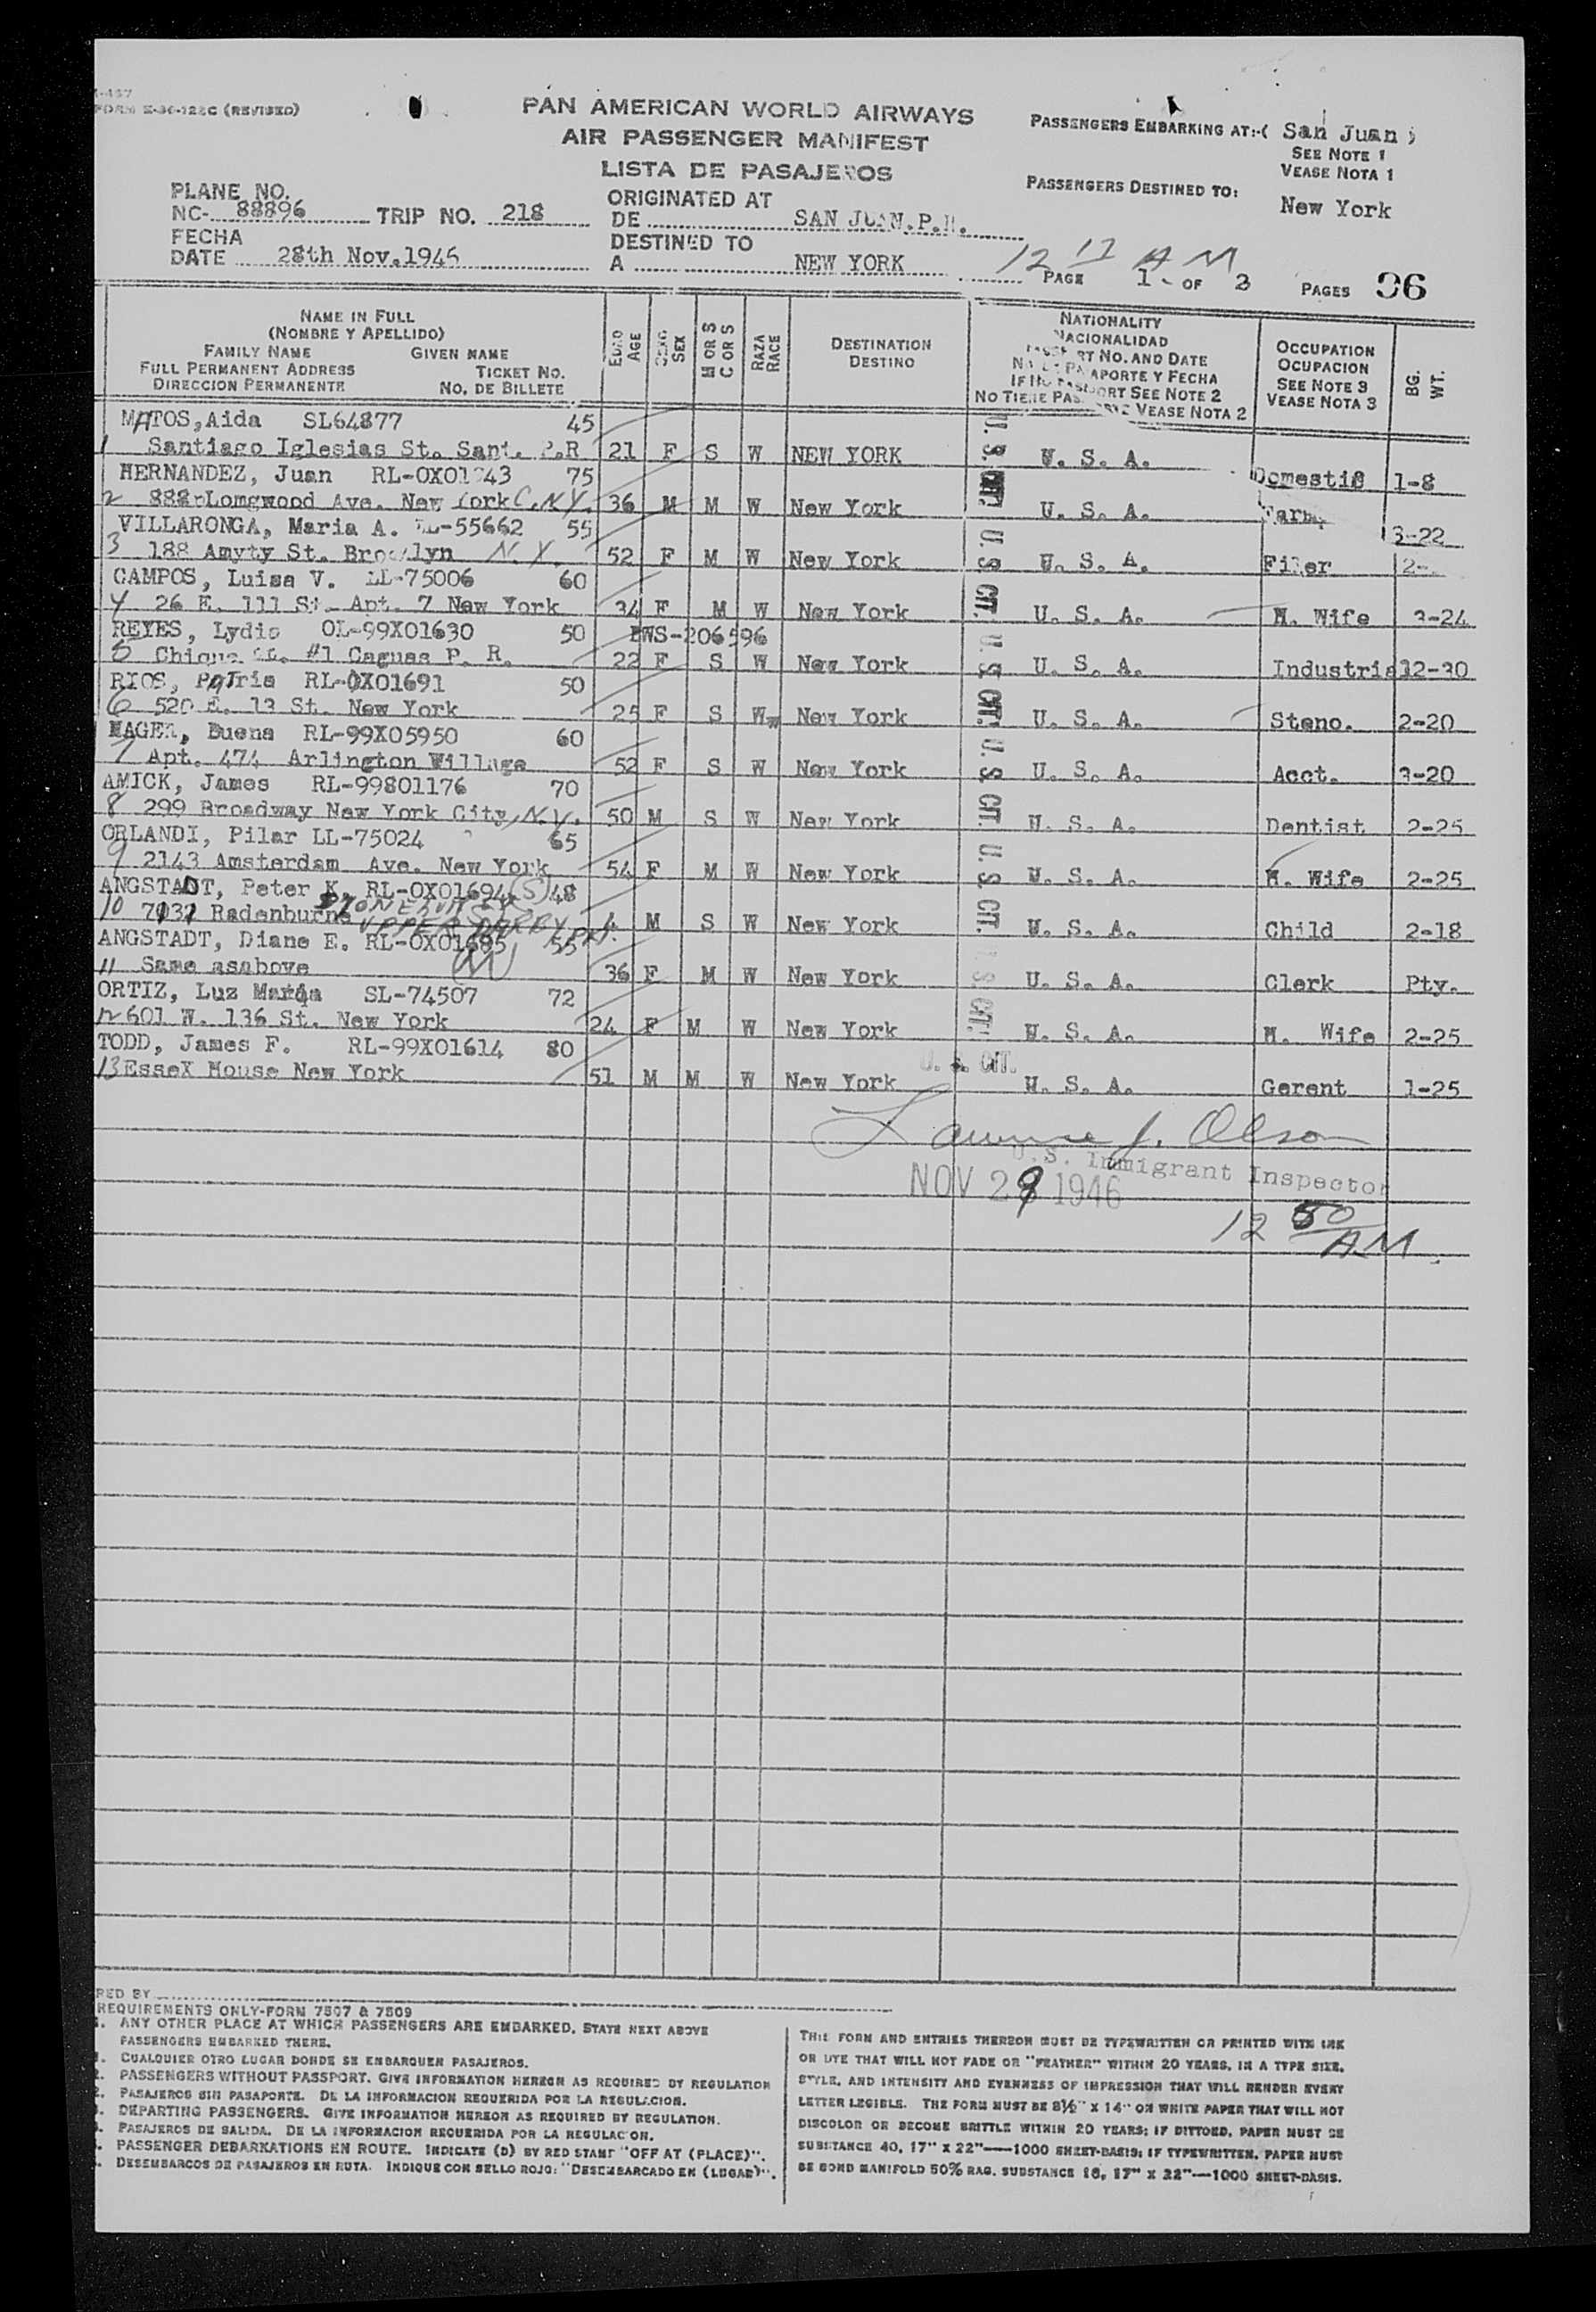 FORM E-30-122C (REVISED)
PAN AMERICAN WORLD AIRWAYS
AIR PASSENGER MANIFEST
LISTA DE PASAJEROS
PASSENGERS EMBARKING AT:-( San Juan )
SEE NOTE 1
VEASE NOTA 1
PASSENGERS DESTINED TO:
New York
PLANE NO.
NC- 88896 TRIP NO. 218
FECHA
DATE 28th Nov.1946
ORIGINATED AT
DE SAN JUAN.P.R.
DESTINED TO
A NEW YORK
12 17 AM
PAGE 1 OF 3 PAGES 96
NAME IN FULL
(NOMBRE Y APELLIDO)
FAMILY NAME GIVEN NAME
FULL PERMANENT ADDRESS TICKET NO.
DIRECCION PERMANENTE NO. DE BILLETE
EDAD AGE
SEXO SEX
M OR S C OR S
RAZA RACE
DESTINATION
DESTINO
NATIONALITY
NACIONALIDAD
PASSPORT NO. AND DATE
NO. DE PASAPORTE Y FECHA
IF NO PASSPORT SEE NOTE 2
NO TIENE PASAPORTE VEASE NOTA 2
OCCUPATION
OCUPACION
SEE NOTE 3
VEASE NOTA 3
BG. WT.
MATOS, Aida SL64877 45
1 Santiago Iglesias St. Sant. P.R 21 F S W NEW YORK U. S. CIT. U. S. A. Domestic 1-8
HERNANDEZ, Juan 75
2 Longwood Ave. New York C. N.Y. 36 M M W New York U. S. A. Farm. 3-22
VILLARONGA, Maria A. LL-55662 55
3 188 Amyty St. Brooklyn N.Y. 52 F M W New York U. S. CIT. U. S. A. Filer 2-
CAMPOS, Luisa V. LL-75006 60
4 26 E. 111 St. Apt. 7 New York 34 F M W New York U. S. A. H. Wife 3-24
REYES, Lydia OL-99X01630 50 EWS-206596
5 Chique St. #1 Caguas P. R. 22 F S W New York U. S. CIT. U. S. A. Industrial 2-30
RIOS, Patria RL-0X01691 50
6 520 E. 13 St. New York 25 F S W New York U. S. A. Steno. 2-20
MAGER, Buena RL-99X05950 60
7 Apt. 474 Arlington Village 52 F S W New York U. S. CIT. U. S. A. Acct. 3-20
AMICK, James RL-99801176 70
8 299 Broadway New York City, N.Y. 50 M S W New York U. S. A. Dentist 2-25
ORLANDI, Pilar LL-75024 65
9 2143 Amsterdam Ave. New York 54 F M W New York U. S. CIT. U. S. A. H. Wife 2-25
ANGSTADT, Peter K. RL-0X01694 (S) 48
10 Radenburne STONEHURST UPPER DARBY, PA. 4 M S W New York U. S. A. Child 2-18
ANGSTADT, Diane E. RL-0X01685 55
11 Same asabove (M) 36 F M W New York U. S. CIT. U. S. A. Clerk Pty.
ORTIZ, Luz Maria SL-74507 72
12 601 W. 136 St. New York 24 F M W New York U. S. A. H. Wife 2-25
TODD, James F. RL-99X01614 80
13 EsseX House New York 51 M M W New York U. S. CIT. U. S. A. Gerent 1-25
Lawrence J. Olson
U.S. Immigrant Inspector
NOV 29 1946
12 50 AM
RED BY
REQUIREMENTS ONLY-FORM 7507 & 7509
. ANY OTHER PLACE AT WHICH PASSENGERS ARE EMBARKED, STATE NEXT ABOVE
PASSENGERS EMBARKED THERE.
. CUALQUIER OTRO LUGAR DONDE SE EMBARQUEN PASAJEROS.
. PASSENGERS WITHOUT PASSPORT. GIVE INFORMATION HEREON AS REQUIRED BY REGULATION
. PASAJEROS SIN PASAPORTE. DE LA INFORMACION REQUERIDA POR LA REGULACION.
. DEPARTING PASSENGERS. GIVE INFORMATION HEREON AS REQUIRED BY REGULATION.
. PASAJEROS DE SALIDA. DE LA INFORMACION REQUERIDA POR LA REGULACION.
. PASSENGER DEBARKATIONS EN ROUTE. INDICATE (D) BY RED STAMP "OFF AT (PLACE)".
. DESEMBARCOS DE PASAJEROS EN RUTA. INDIQUE CON SELLO ROJO: "DESEMBARCADO EN (LUGAR)".
THIS FORM AND ENTRIES THEREON MUST BE TYPEWRITTEN OR PRINTED WITH INK
OR DYE THAT WILL NOT FADE OR "FEATHER" WITHIN 20 YEARS, IN A TYPE SIZE,
STYLE, AND INTENSITY AND EVENNESS OF IMPRESSION THAT WILL RENDER EVERY
LETTER LEGIBLE. THE FORM MUST BE 8½" X 14" ON WHITE PAPER THAT WILL NOT
DISCOLOR OR BECOME BRITTLE WITHIN 20 YEARS; IF DITTOED, PAPER MUST BE
SUBSTANCE 40, 17" X 22"—1000 SHEET-BASIS; IF TYPEWRITTEN, PAPER MUST
BE BOND MANIFOLD 50% RAG. SUBSTANCE 16, 17" X 22"—1000 SHEET-BASIS.